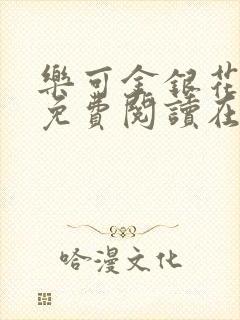 樂可金銀花
免費閱讀在
哈漫文化